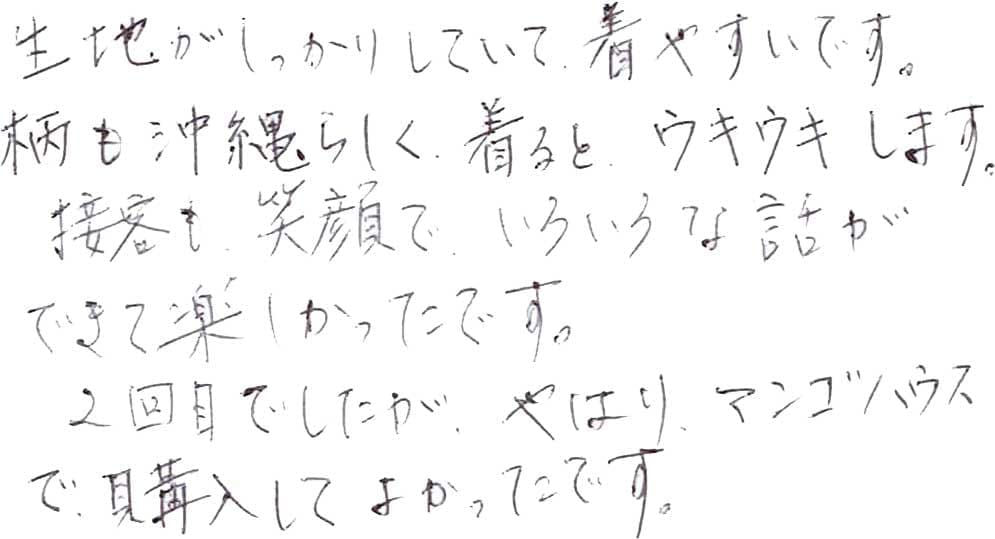 生地がしっかりしていて、着やすいです。
柄も沖縄らしく、着ると、ウキウキします。
接客も、笑顔で、いろいろな話が
できて楽しかったです。
2回目でしたが、やはり、マンゴハウス
で、購入してよかったです。